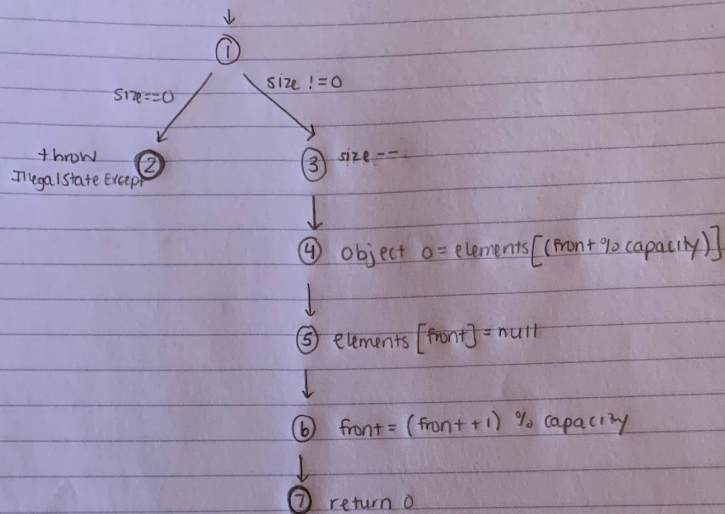 ①
size==0
size != 0
throw
IllegalState Except
②
③ size--
④ object o = elements[(front % capacity)]
⑤ elements[front] = null
⑥ front = (front + 1) % capacity
⑦ return o